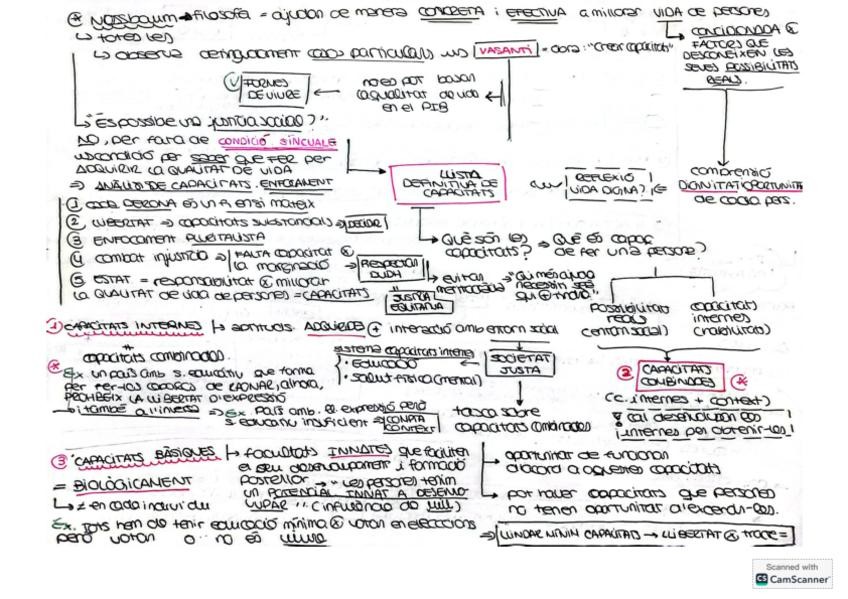 * NUSSBAUM → filosofa = ajudar de manera CONCRETA i EFECTIVA a millorar VIDA de persones
↳ totes les
↳ observa detingudament casos particulars
VASANTI = obra: "Crear capacitats"
CONDICIONADA x
FACTORS QUE
DESCONEIXEN LES
SEVES POSSIBILITATS
REALS
FORMES
DE VIURE
←
no es pot basar
la qualitat de vida
en el PIB
↳ "És possible una justícia social?"
NO, per falta de CONDICIÓ
condició per saber què FER per
ADQUIRIR LA QUALITAT DE VIDA
⇒ ANÀLISI DE CAPACITATS. ENFOCAMENT
LLISTA
DEFINITIVA DE
CAPACITATS
REFLEXIÓ
VIDA DIGNA?
comprensió
DIGNITAT I OPORTUNITATS
de cada pers.
① cada PERSONA ÉS UN FI en si mateix
② LLIBERTAT → capacitats substancials → DECIDIR
③ ENFOCAMENT PLURALISTA
④ combat injustícia → FALTA capacitat x
la marginació → RESPECTAR
DUDH
⑤ ESTAT = responsabilitat x millorar
la QUALITAT de vida de persones = CAPACITATS
JUSTÍCIA
EQUITATIVA
Què són les ⇒ Què és capaç
capacitats? de fer una persona?
possibilitats
reals
(entorn social)
capacitats
internes
(habilitats)
① CAPACITATS INTERNES → aptituds ADQUIRIDES (+ interacció amb entorn social
capacitats combinades.
* Ex un país amb s. educatiu que forma
per fer-los capaços de RAONAR, alhora,
PROHIBEIX LA LLIBERTAT D'EXPRESSIÓ
↳ i també a l'inversa ⇒ Ex País amb expressió però
s. educatiu insuficient
sistema capacitats internes
· EDUCACIÓ
· Salut física (mental)
←
SOCIETAT
JUSTA
tasca sobre
capacitats combinades
② CAPACITATS
COMBINADES *
(c. internes + context)
cal desenvolupar les
internes per obtenir-les!
③ "CAPACITATS BÀSIQUES → facultats INNATES que faciliten
el seu desenvolupament i formació
posterior → "Les persones tenim
un POTENCIAL INNAT A DESENVO-
LUPAR" (influències de Mill)
= BIOLÒGICAMENT
↳ ≠ en cada individu
Ex. Tots hem de tenir educació mínima x votar en eleccions
però votar o no és lliure
→ oportunitat de funcionar
d'acord a aquestes capacitats
→ pot haver capacitats que persones
no tenen oportunitat d'exercir-les.
⇒ LLINDAR MÍNIM CAPACITATS → LLIBERTAT x
Scanned with
CS CamScanner